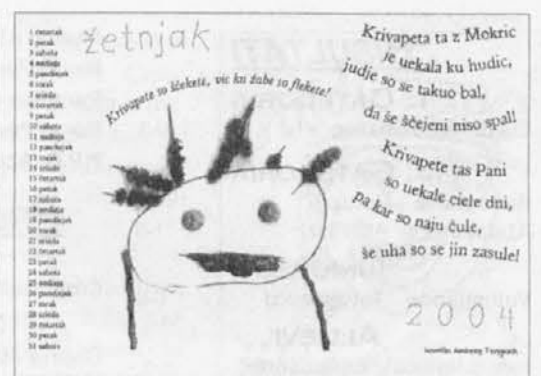 žetnjak
1 četartak
2 petak
3 sabota
4
5 pandiejak
6 torak
7 srieda
8 četartak
9 petak
10 sabota
11
12 pandiejak
13 torak
14 srieda
15 četartak
16 petak
17 sabota
18
19 pandiejak
20 torak
21 srieda
22 četartak
23 petak
24 sabota
25
26 pandiejak
27 torak
28 srieda
29 četartak
30 petak
31 sabota
Krivapete so ščekete, vic ku žabe so flekete!
Krivapeta ta z Mokric
je uekala ku hudic,
judje so se takuo bal,
da še ščejeni niso spal!
Krivapete tas Pani
so uekale ciele dni,
pa kar so naju čule,
še uha so se jin zasule!
2004